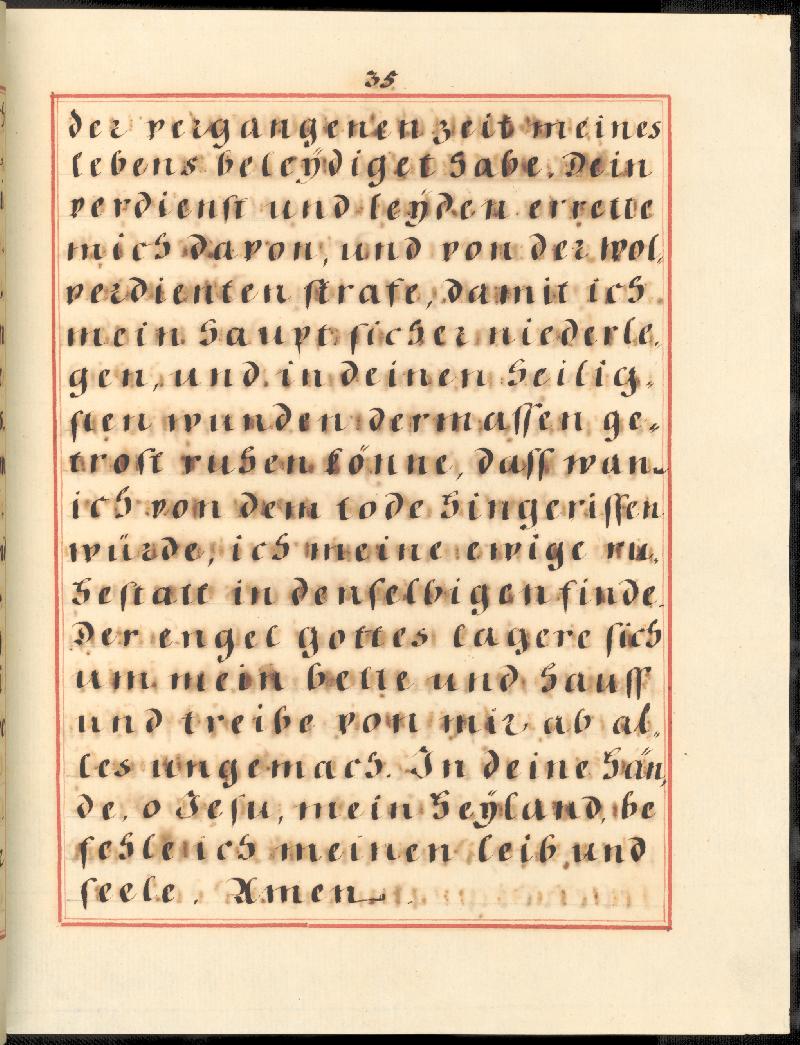 35
der vergangenen zeit meines
lebens beleÿdiget habe. Dein
verdienst und leÿden errette
mich davon, und von der wol,
verdienten strafe, damit ich
mein haupt sicher niederle,
gen, und in deinen heilig,
sten wunden dermassen ge,
trost ruhen könne, dass wan
ich von dem tode hingerissen
würde, ich meine ewige ru,
hestatt in denselbigen finde.
Der engel gottes lagere sich
um mein bette und hauss
und treibe von mir ab al,
les ungemach. In deine hän,
de, o Jesu, mein heÿland, be
fehle ich meinen leib und
seele. Amen